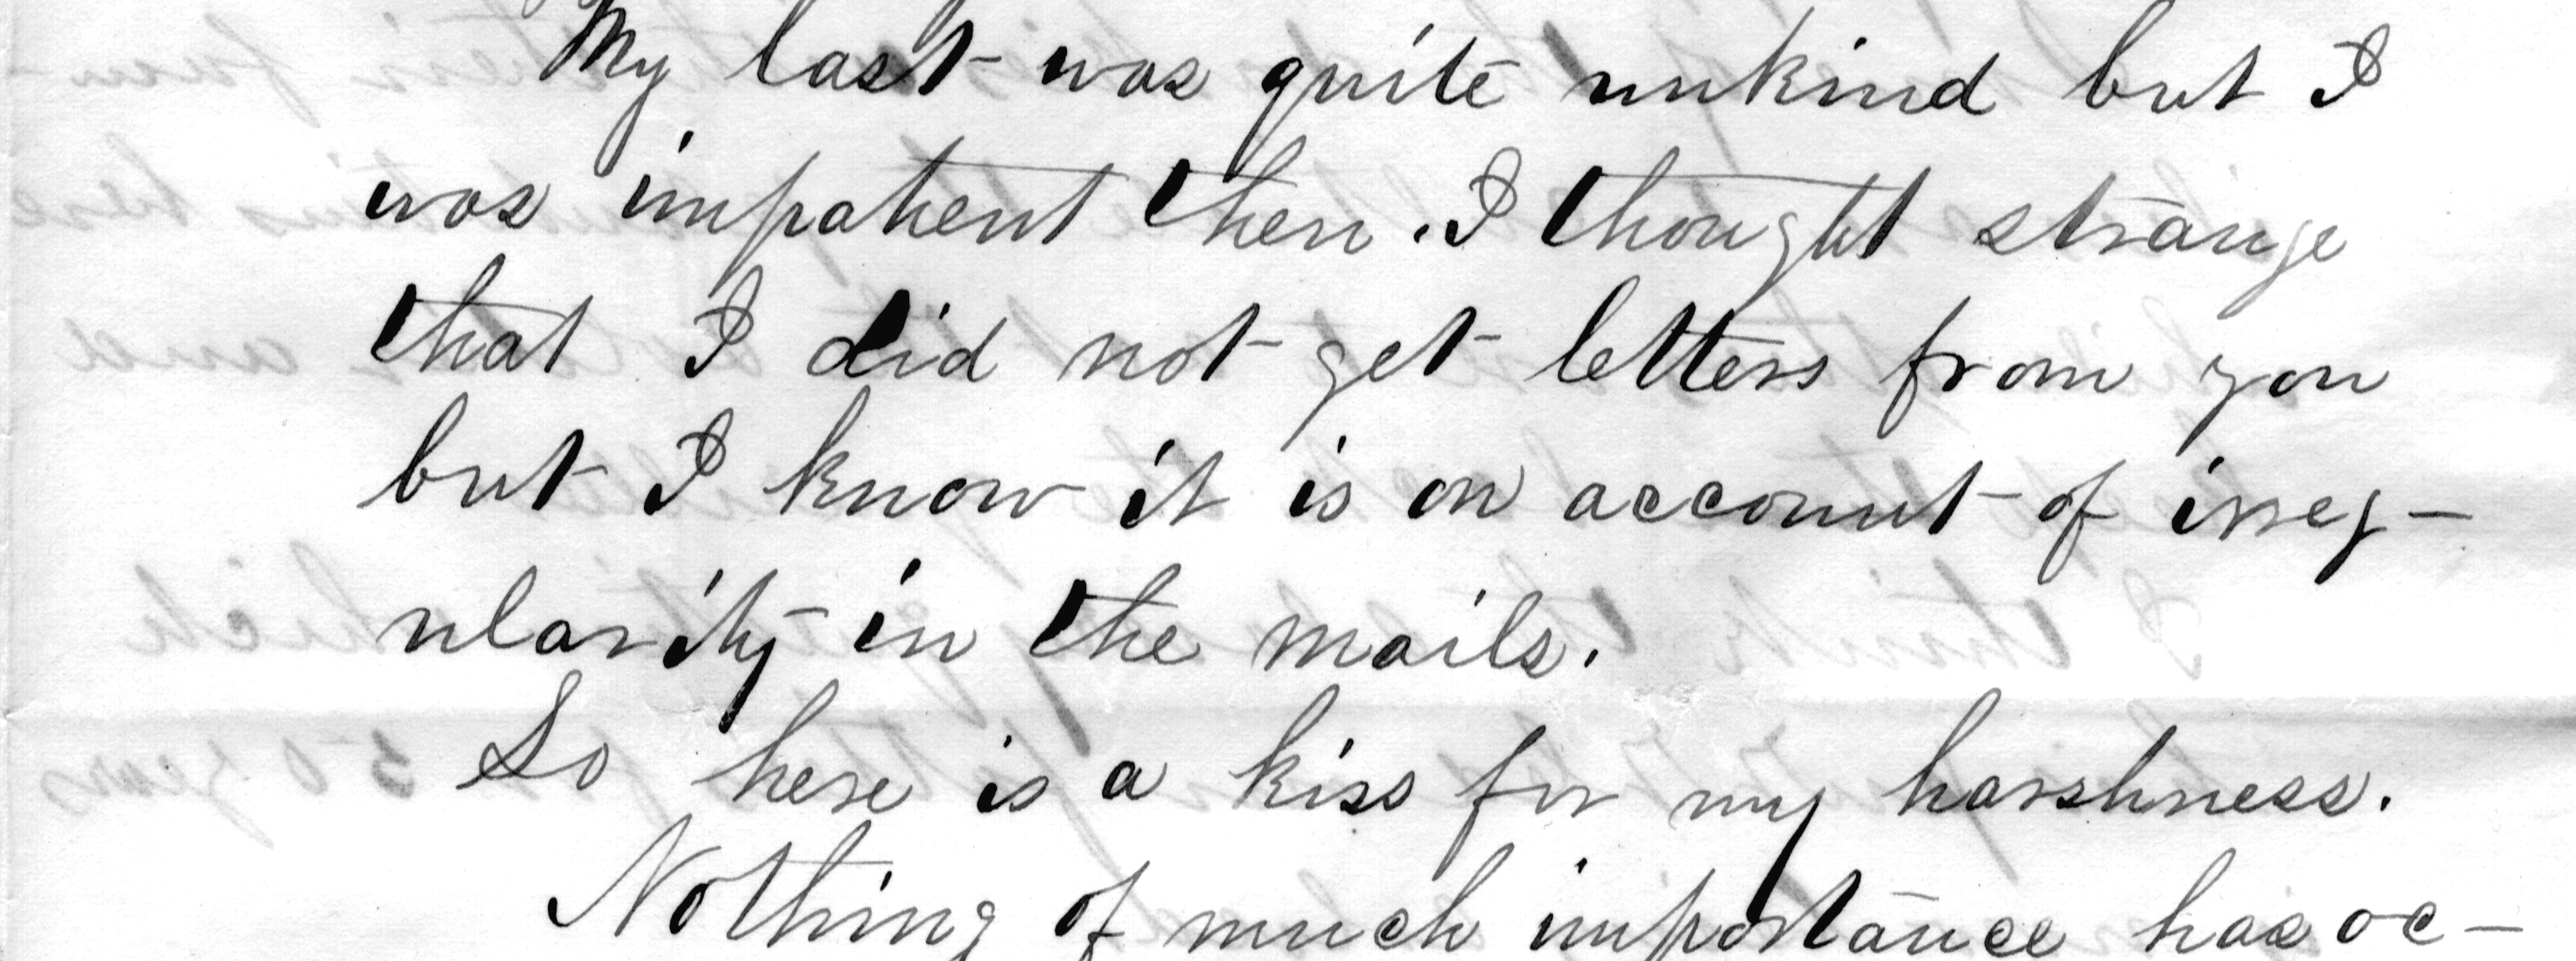 My last was quite unkind but I
was impatient then. I thought strange
that I did not get letters from you
but I know it is on account of irreg-
ularity in the mails.
So here is a kiss for my harshness.
Nothing of much importance has oc-